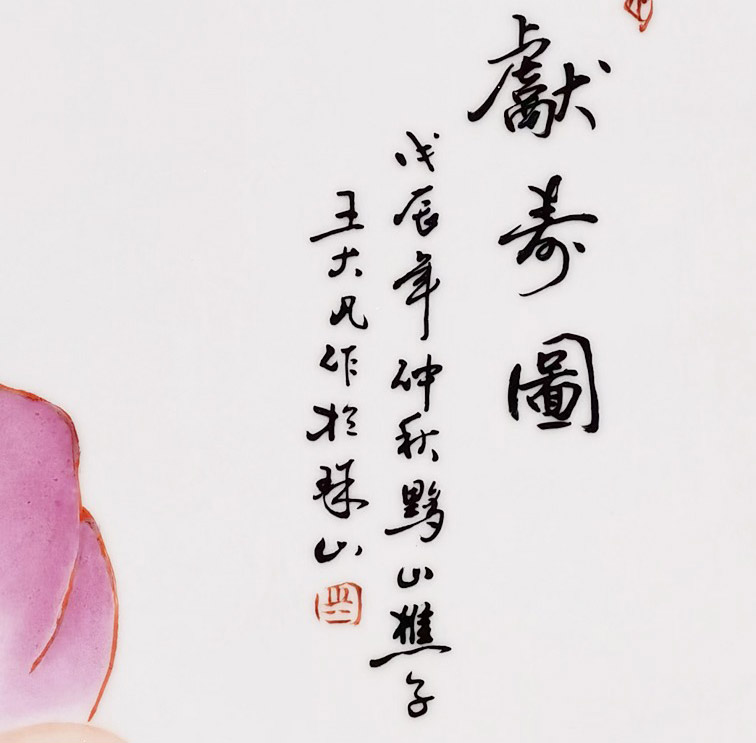 獻壽圖
戊辰年仲秋黟山樵子
王大凡作於珠山